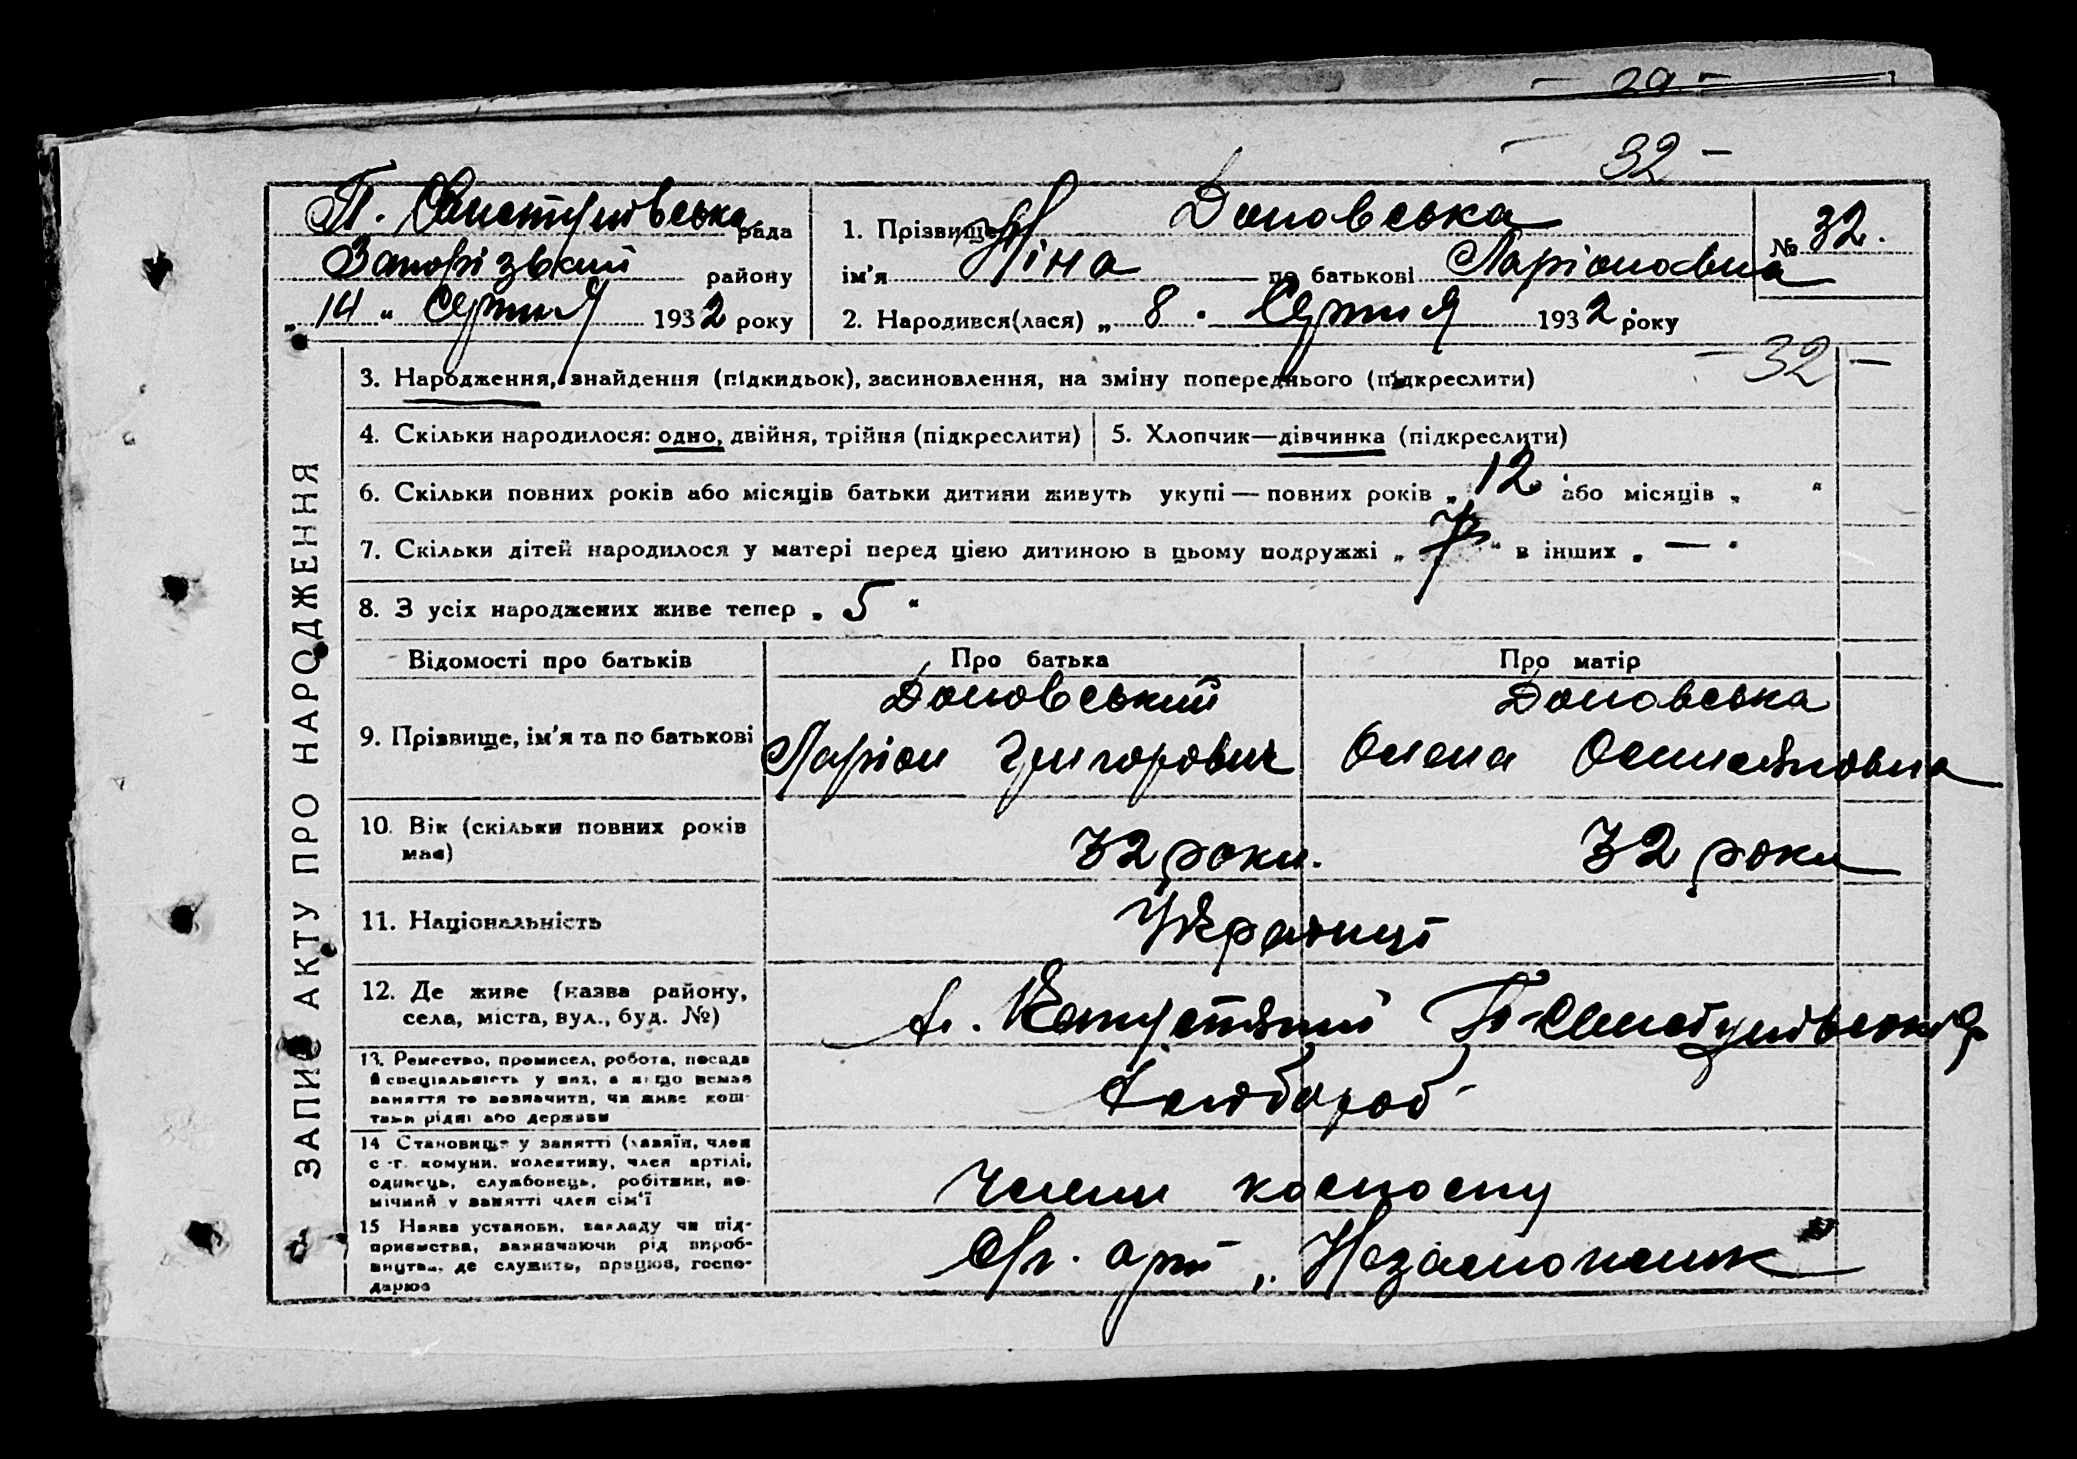 - 29 -
32 -
рада
Запорізький району
„ 14 " Серпня 1932 року
1. Прізвище Доновська
ім'я Ніна по батькові Ларіоновна
№ 32.
2. Народився(лася) „ 8 " Серпня 1932 року
- 32 -
ЗАПИС АКТУ ПРО НАРОДЖЕННЯ
3. Народження, знайдення (підкидьок), засиновлення, на зміну попереднього (підкреслити)
4. Скільки народилося: одно, двійня, трійня (підкреслити)
5. Хлопчик—дівчинка (підкреслити)
6. Скільки повних років або місяців батьки дитини живуть укупі — повних років „ 12 " або місяців „ "
7. Скільки дітей народилося у матері перед цією дитиною в цьому подружжі „ 7 " в інших „ — "
8. З усіх народжених живе тепер „ 5 "
Відомості про батьків
Про батька
Про матір
9. Прізвище, ім'я та по батькові
Доновський
Ларіон Григорович
Доновська
Олена
10. Вік (скільки повних років має)
32 роки.
32 роки
11. Національність
Українці
12. Де живе (назва району,
села, міста, вул., буд. №)
13. Ремество, промисел, робота, посада
й спеціальність у них, а якщо немає
заняття то зазначити, чи живе кош-
тами рідні або держави
Хлібороб
14 Становище у занятті (хазяїн, член
с.-г. комуни, колективу, член артілі,
одинець, службовець, робітник, по-
мічний у занятті член сім'ї
Члени колгоспу
15 Назва установи, закладу чи під-
приємства, зазначаючи рід вироб-
ництва, де служить, працює, госпо-
дарює
С/г. арт „Незаможник"